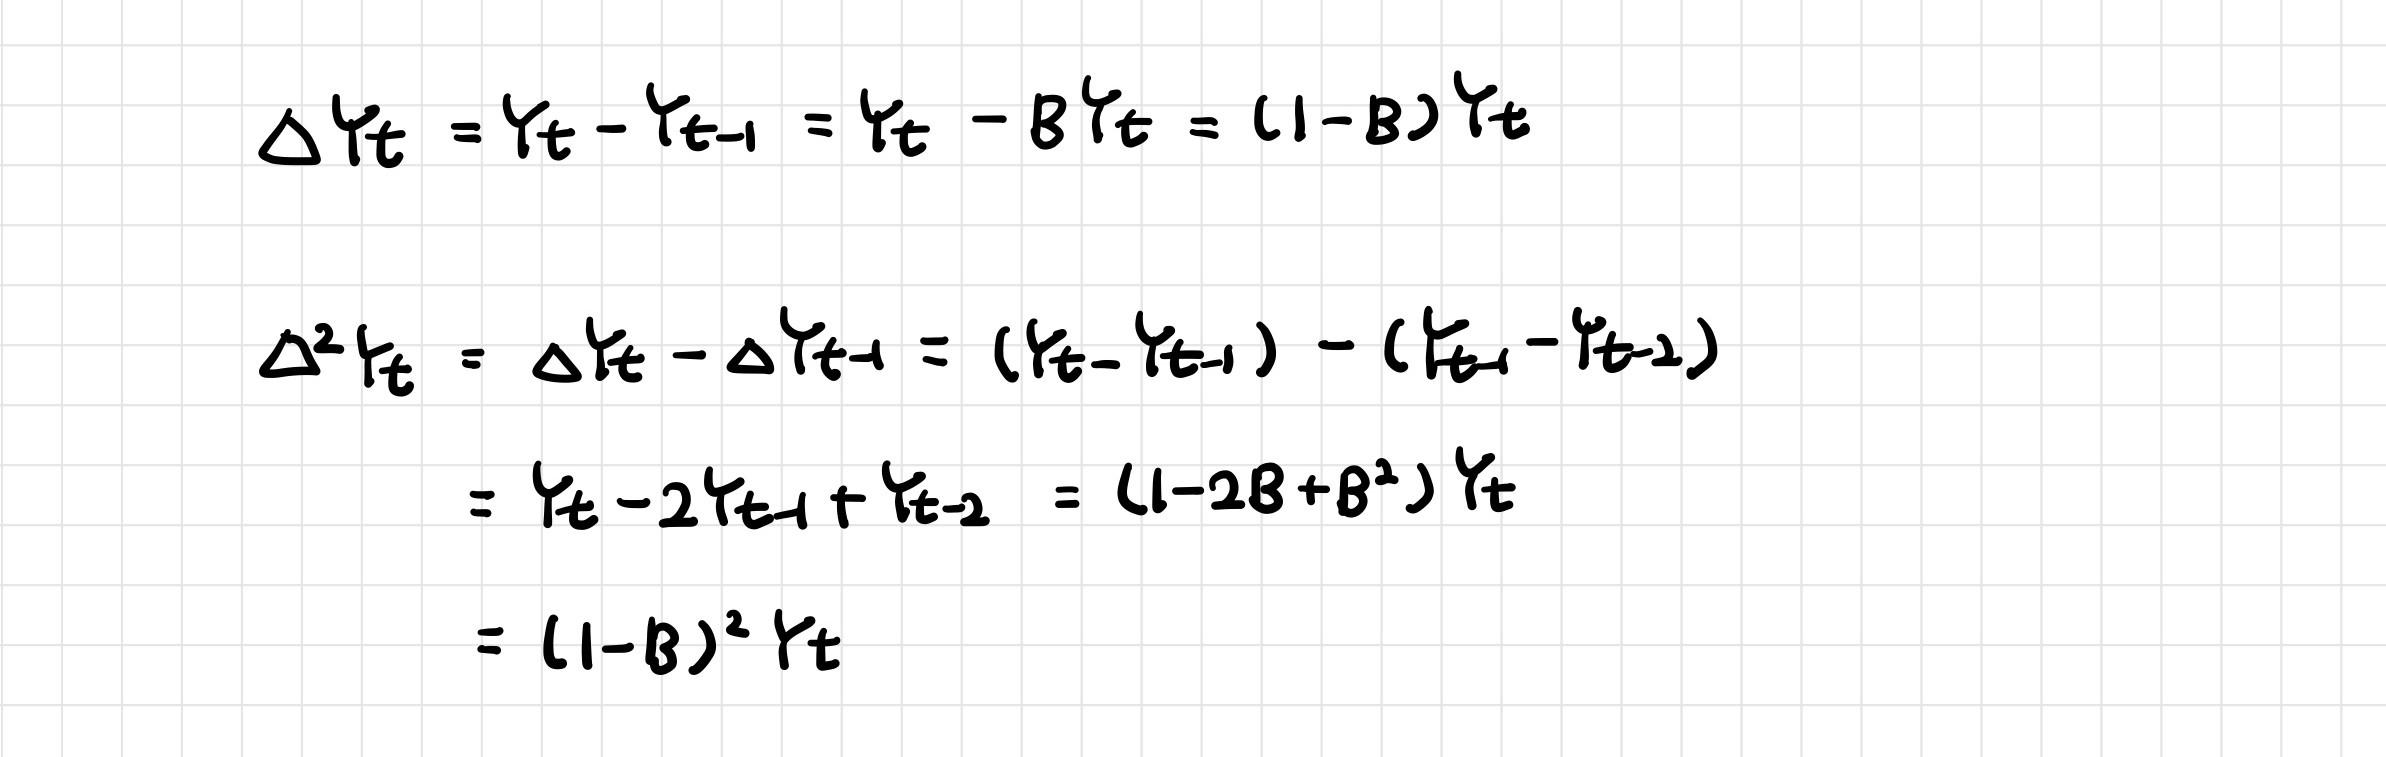 ΔY_t = Y_t - Y_{t-1} = Y_t - BY_t = (1-B)Y_t
Δ²Y_t = ΔY_t - ΔY_{t-1} = (Y_t - Y_{t-1}) - (Y_{t-1} - Y_{t-2})
= Y_t - 2Y_{t-1} + Y_{t-2} = (1-2B+B²)Y_t
= (1-B)²Y_t